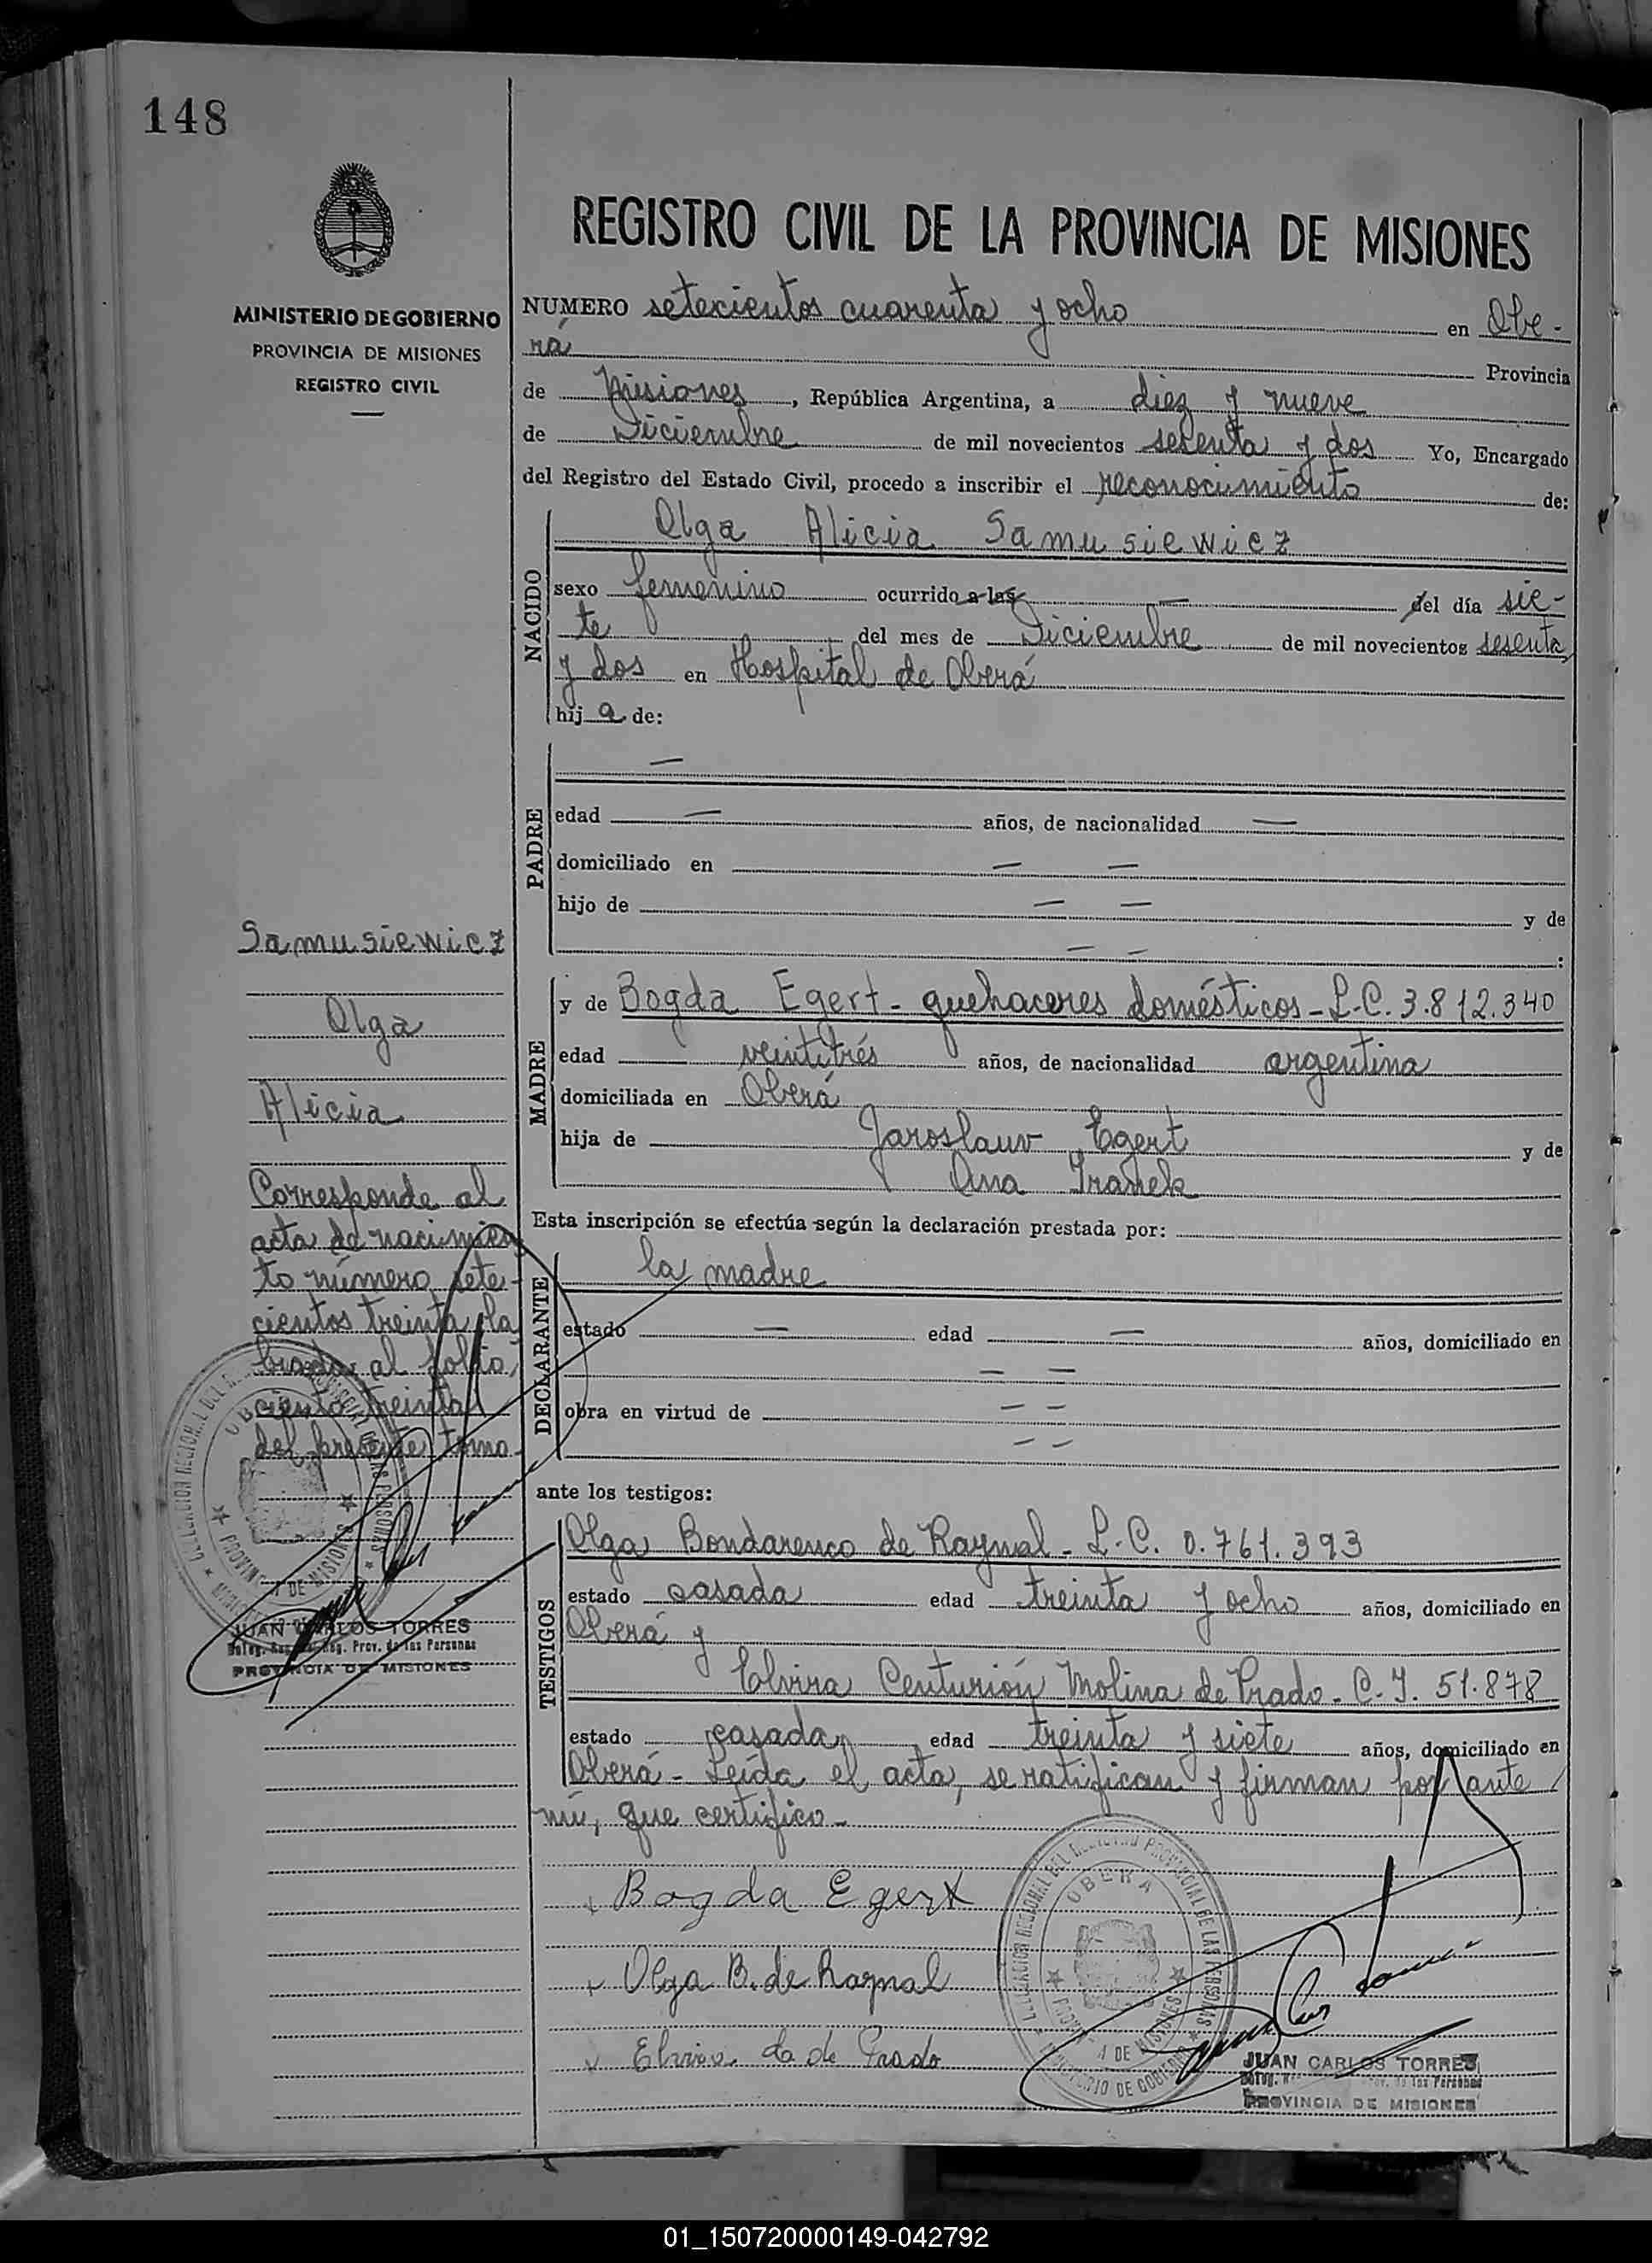 148
MINISTERIO DE GOBIERNO
PROVINCIA DE MISIONES
REGISTRO CIVIL
REGISTRO CIVIL DE LA PROVINCIA DE MISIONES
NUMERO setecientos cuarenta y ocho en Obe-
rá Provincia
de Misiones, República Argentina, a diez y nueve
de Diciembre de mil novecientos sesenta y dos Yo, Encargado
del Registro del Estado Civil, procedo a inscribir el reconocimiento de:
NACIDO
Olga Alicia Samusiewicz
sexo femenino ocurrido a las — del día sie-
te del mes de Diciembre de mil novecientos sesenta
y dos en Hospital de Oberá
hija de:
PADRE
—
edad — años, de nacionalidad —
domiciliado en — —
hijo de — — y de
— — :
MADRE
y de Bogda Egert - quehaceres domésticos - L.C. 3.812.340
edad veintitrés años, de nacionalidad argentina
domiciliada en Oberá
hija de Jaroslauv Egert y de
Ana
Esta inscripción se efectúa según la declaración prestada por:
DECLARANTE
la madre
estado — edad — años, domiciliado en
— —
obra en virtud de — —
— —
ante los testigos:
TESTIGOS
Olga Bondarenco de Raynal - L.C. 0.761.393
estado casada edad treinta y ocho años, domiciliado en
Oberá y
Elvira Centurión Molina de Prado - C.I. 51.878
estado casada edad treinta y siete años, domiciliado en
Oberá - Leída el acta, se ratifican y firman por ante
mí, que certifico -
Bogda Egert
Olga B. de Raynal
Elvira C. de Prado
OBERA
JUAN CARLOS TORRES
PROVINCIA DE MISIONES
Samusiewicz
Olga
Alicia
Corresponde al
acta de nacimien
to número sete-
cientos treinta la
brada al folio
ciento treinta
del presente tomo.
JUAN CARLOS TORRES
Deleg. Reg. Prov. de las Personas
PROVINCIA DE MISIONES
01_150720000149-042792